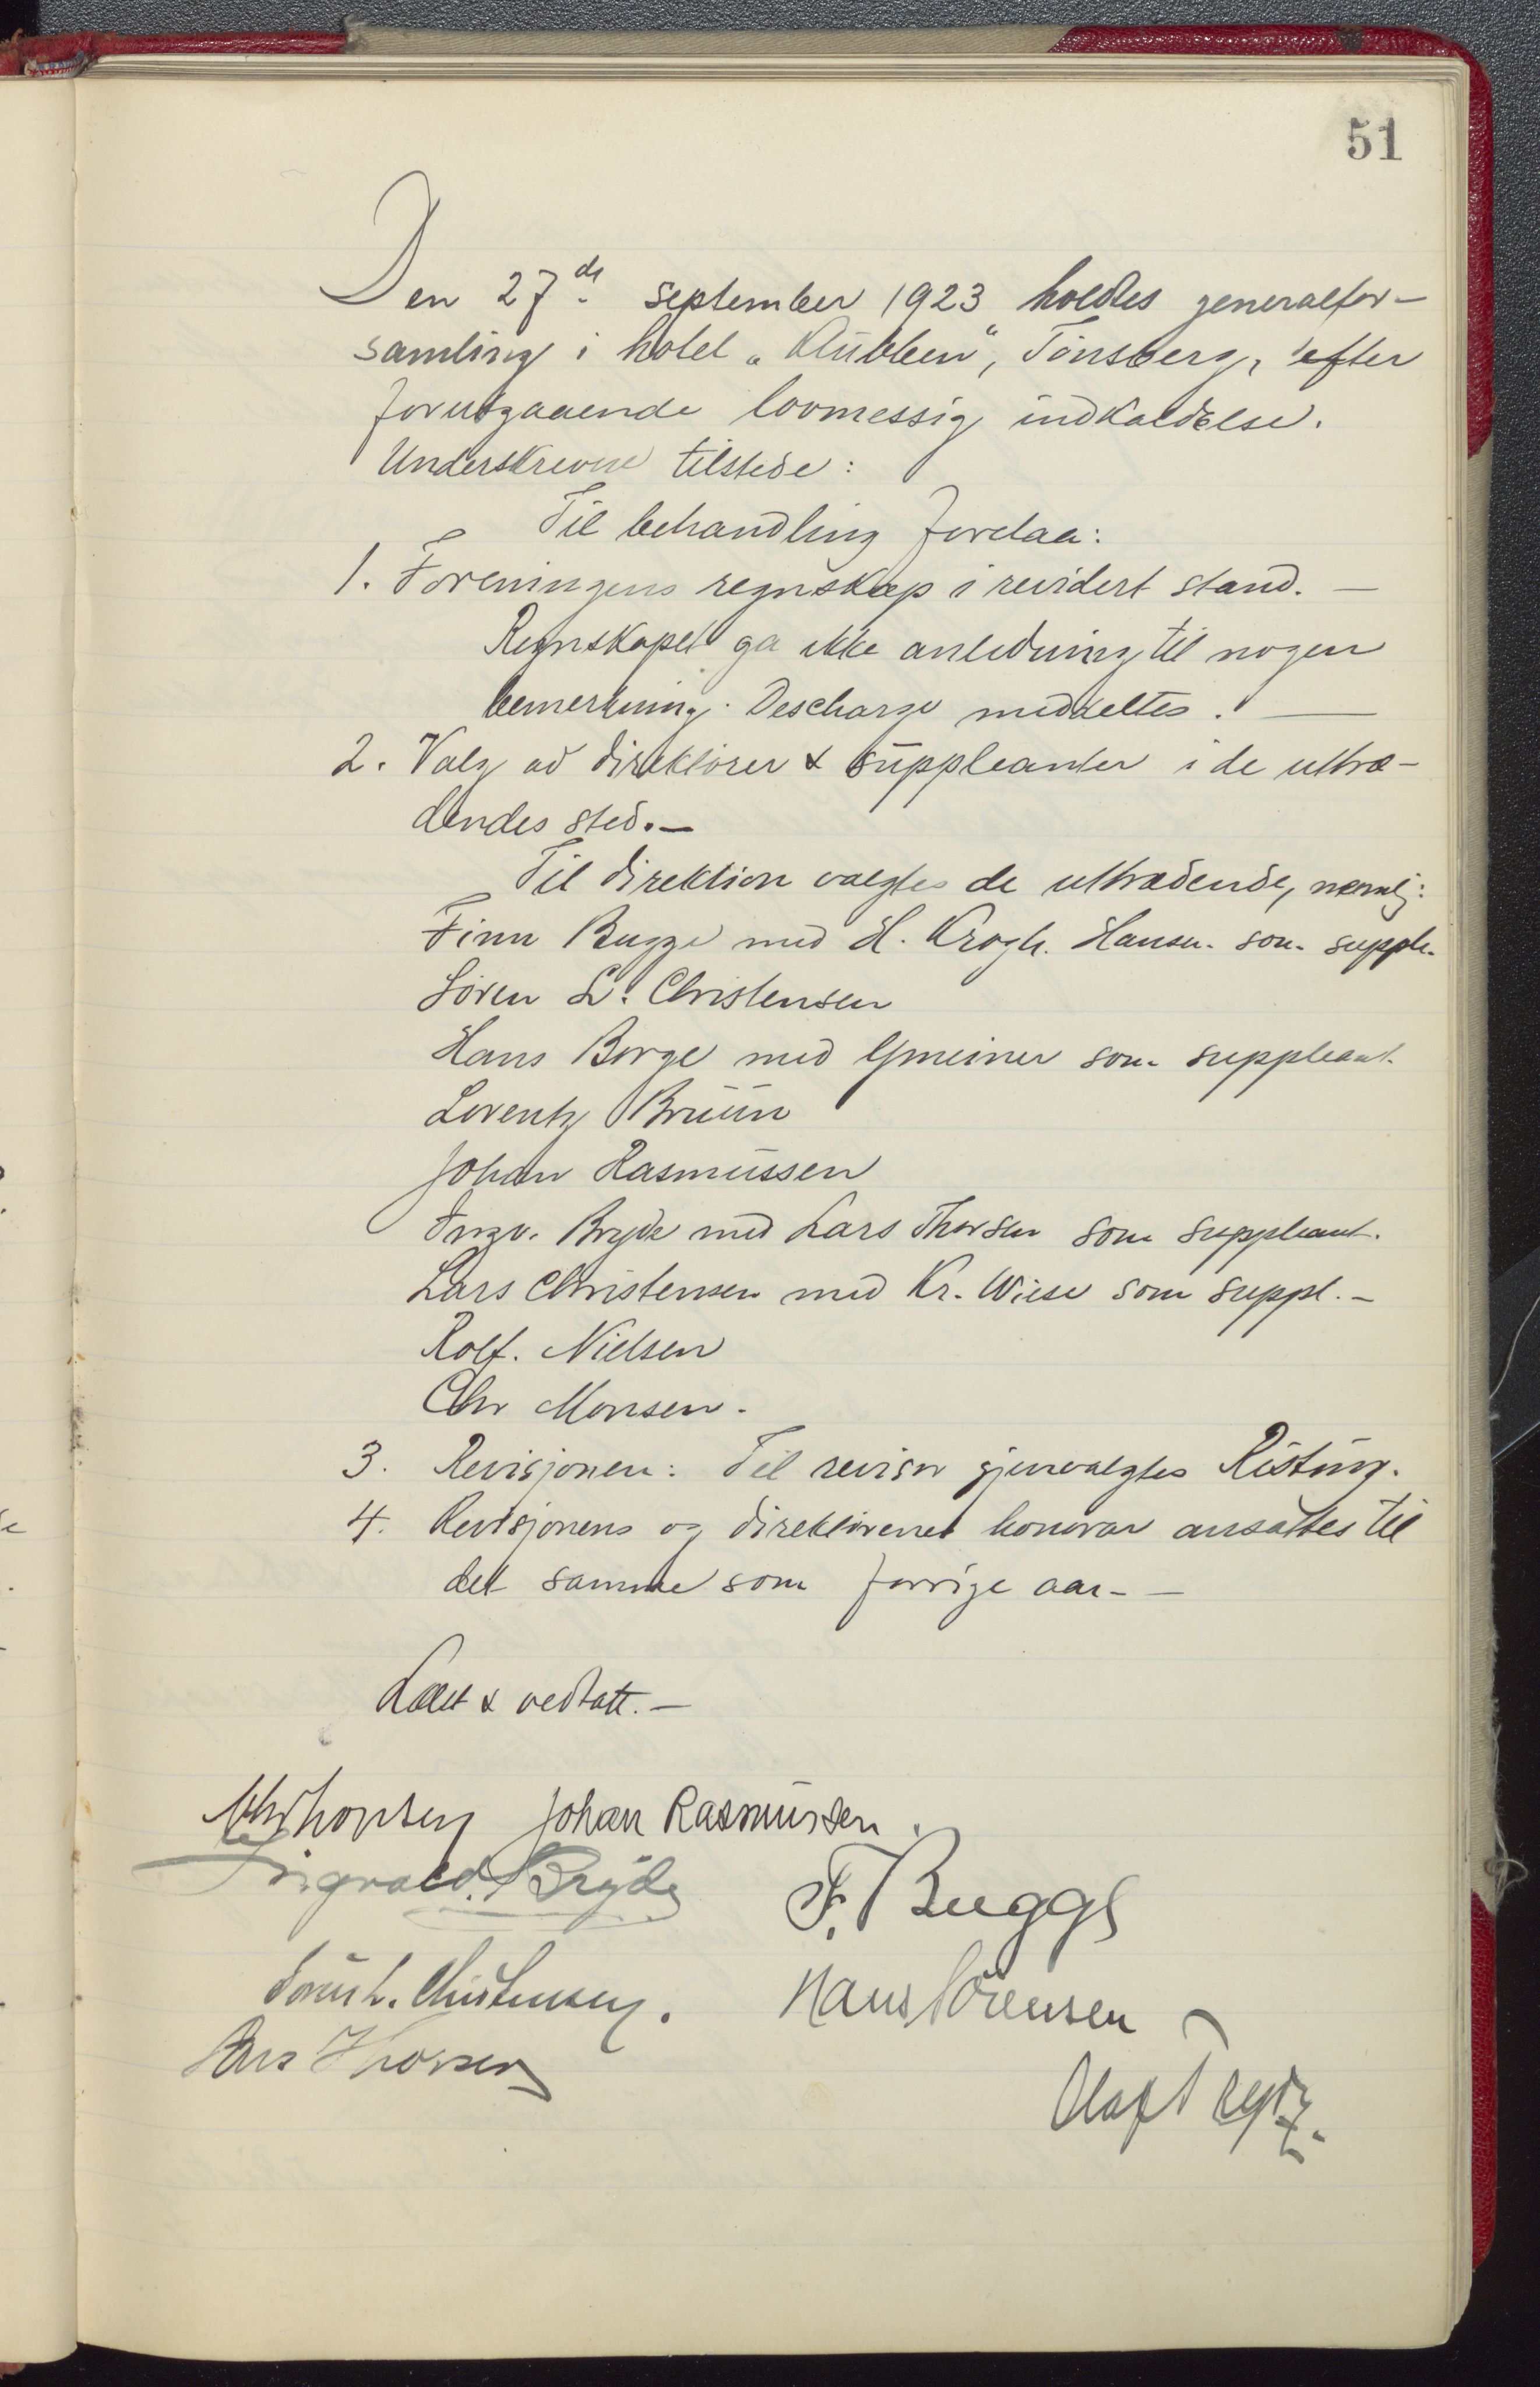 51
Den 27de september 1923 holdtes generalfor-
samling i hotel „Klubben“, Tønsberg, efter
forutgaaende lovmessig indkaldelse.
Underskrevne tilstede:
Til behandling forelaa:
1. Foreningens regnskap i revidert stand. —
Regnskapet ga ikke anledning til nogen
bemerkning. Descharge meddeltes. —
2. Valg av direktører & suppleanter i de uttræ-
dendes sted. —
Til direktion valgtes de uttrædende, nemlig:
Finn Bugge med H. Krogh. Hansen som supple.
Søren L. Christensen
Hans Borge med Gmeiner som suppleant.
Lorentz Bruun
Johan Rasmussen
Ingv. Bryde med Lars Thorsen som suppleant.
Lars Christensen med Kr. Wiese som suppl. —
Rolf. Nielsen
Chr Monsen.
3. Revisjonen: Til revisor gjenvalgtes Risting.
4. Revisjonens og direktørenes honorar ansattes til
det samme som forrige aar. —
Læst & vedtatt. —
Johan Rasmussen.
Ingvald Bryde
F. Bugge
Søren L. Christensen.
Hans Sørensen
Lars Thorsen
Olaf